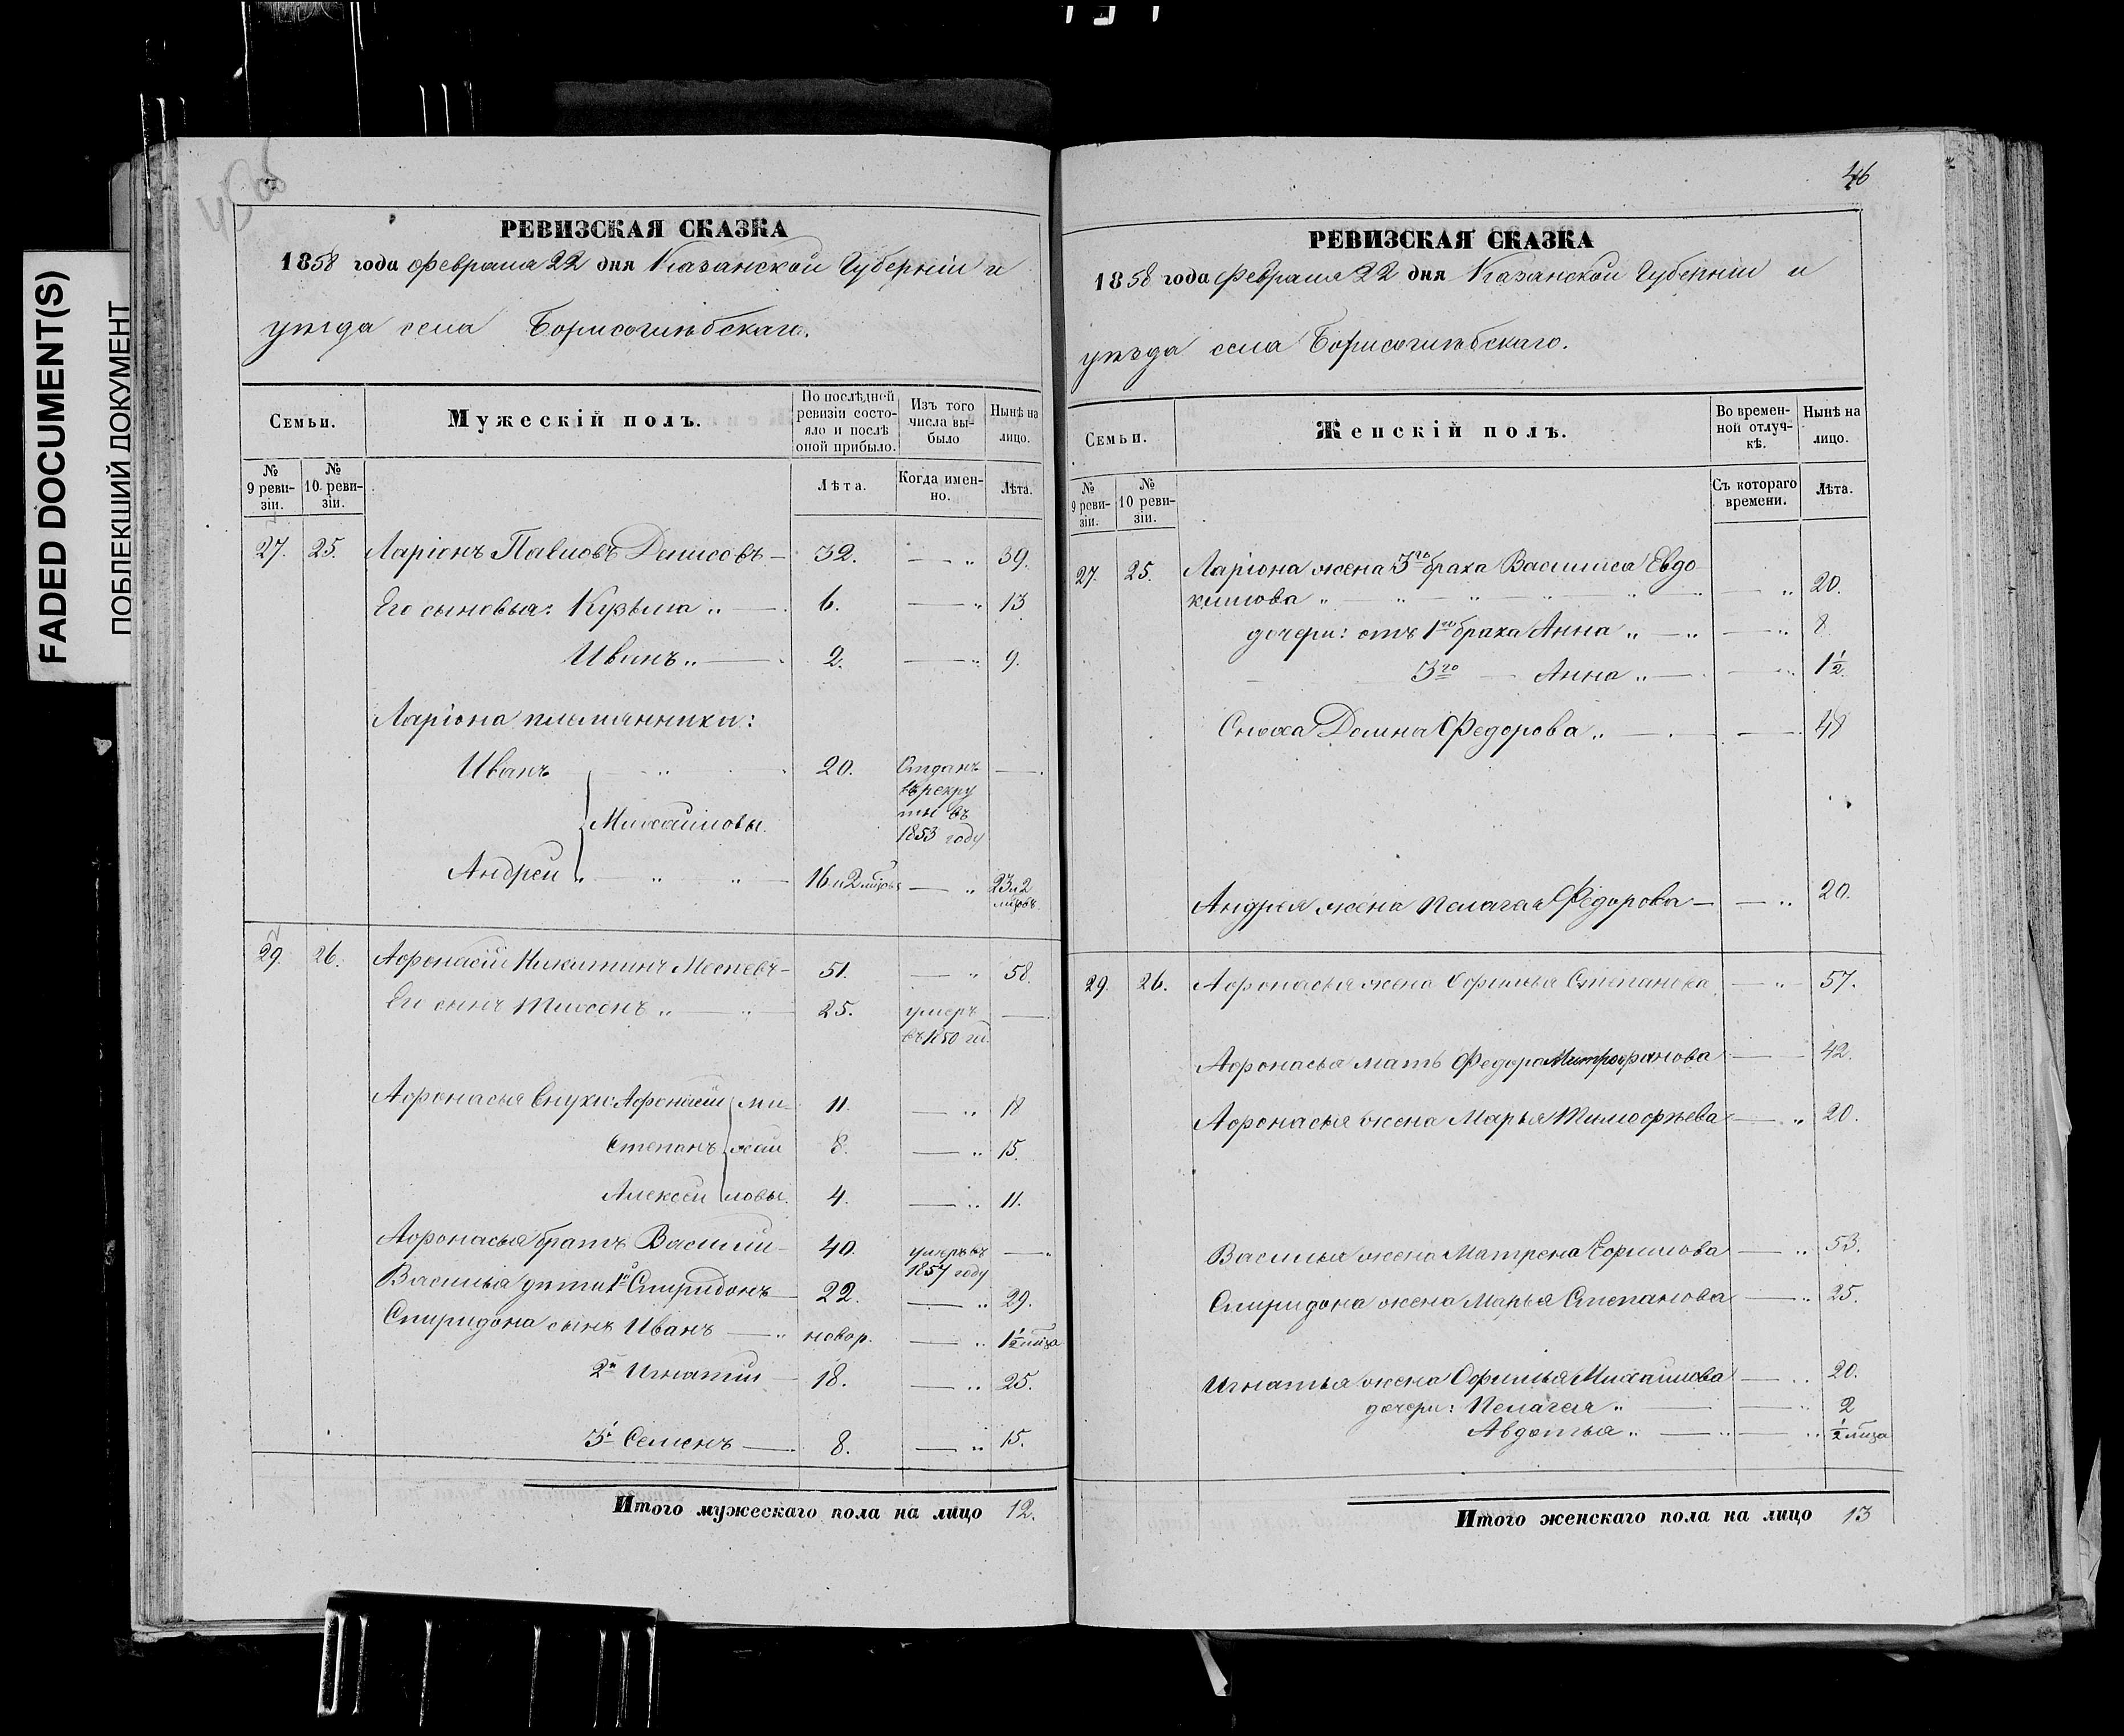 FADED DOCUMENT(S)
ПОБЛЕКШИЙ ДОКУМЕНТ
РЕВИЗСКАЯ СКАЗКА
1858 года февраля 22 дня Казанской Губерніи и
уѣзда села Борисоглѣбскаго.
Семьи.
Мужескій полъ.
По послѣдней ревизіи состояло и послѣ оной прибыло.
Изъ того числа выбыло
Нынѣ на лицо.
№ 9 ревизіи.
№ 10 ревизіи.
Лѣта.
Когда именно.
Лѣта.
27. 25. Ларіонъ Павловъ Денисовъ — 32. — „ 39.
Его сыновья: Кузьма „ — 6. — „ 13
Иванъ „ — 2. — „ 9.
Ларіона племянники:
Иванъ 20. Отданъ въ рекруты въ 1853 году —
Михайловы.
Андрей „ „ „ — 16 и 2 мѣсяц — „ 23 и 2 мѣсяц
29. 26. Афонасій Никитинъ — 51. — „ 58.
Его сынъ „ — „ 25. умеръ въ 1850 го —
Афонасья внуки: Афонасій Ми- 11. — „ 18
Степанъ хай 8. — „ 15.
Алексей ловы. 4. — „ 11.
Афонасья братъ Василий — 40. умеръ въ 1857 году —
Василья дѣти 1й Спиридонъ — 22. — „ 29.
Спиридона сынъ Иванъ — „ новор. — „ 1½ мѣца
2й Игнатий — 18. — „ 25.
3й Семенъ — 8. — „ 15.
Итого мужескаго пола на лицо 12.
46
РЕВИЗСКАЯ СКАЗКА
1858 года февраля 22 дня Казанской Губерніи и
уѣзда села Борисоглѣбскаго.
Семьи.
Женскій полъ.
Во временной отлучкѣ.
Нынѣ на лицо.
№ 9 ревизіи.
№ 10 ревизіи.
Съ котораго времени.
Лѣта.
27. 25. Ларіона жена 3го брака Василиса Евдо
кимова „ „ „ „ „ — — „ 20.
дочери: отъ 1го брака Анна „ — „ — „ 8
— 3го — Анна „ — — „ 1½
Сноха Домна Федорова „ — — 48
Андрея жена Пелагая Федорова — — „ 20.
29. 26. Афонасья жена Офимья Степанова — „ — 57.
Афонасья мать Федора Митрофанова — — 42.
Афонасья жена Марья Тимофѣева — „ 20.
Василья жена Матрена Ефимова — „ 53.
Спиридона жена Марья Степанова — „ 25.
Игнатья жена Офимья Михайлова — „ 20.
дочери: Пелагея „ — — „ 2
Авдотья „ — „ — „ ½ мѣца
Итого женскаго пола на лицо 13